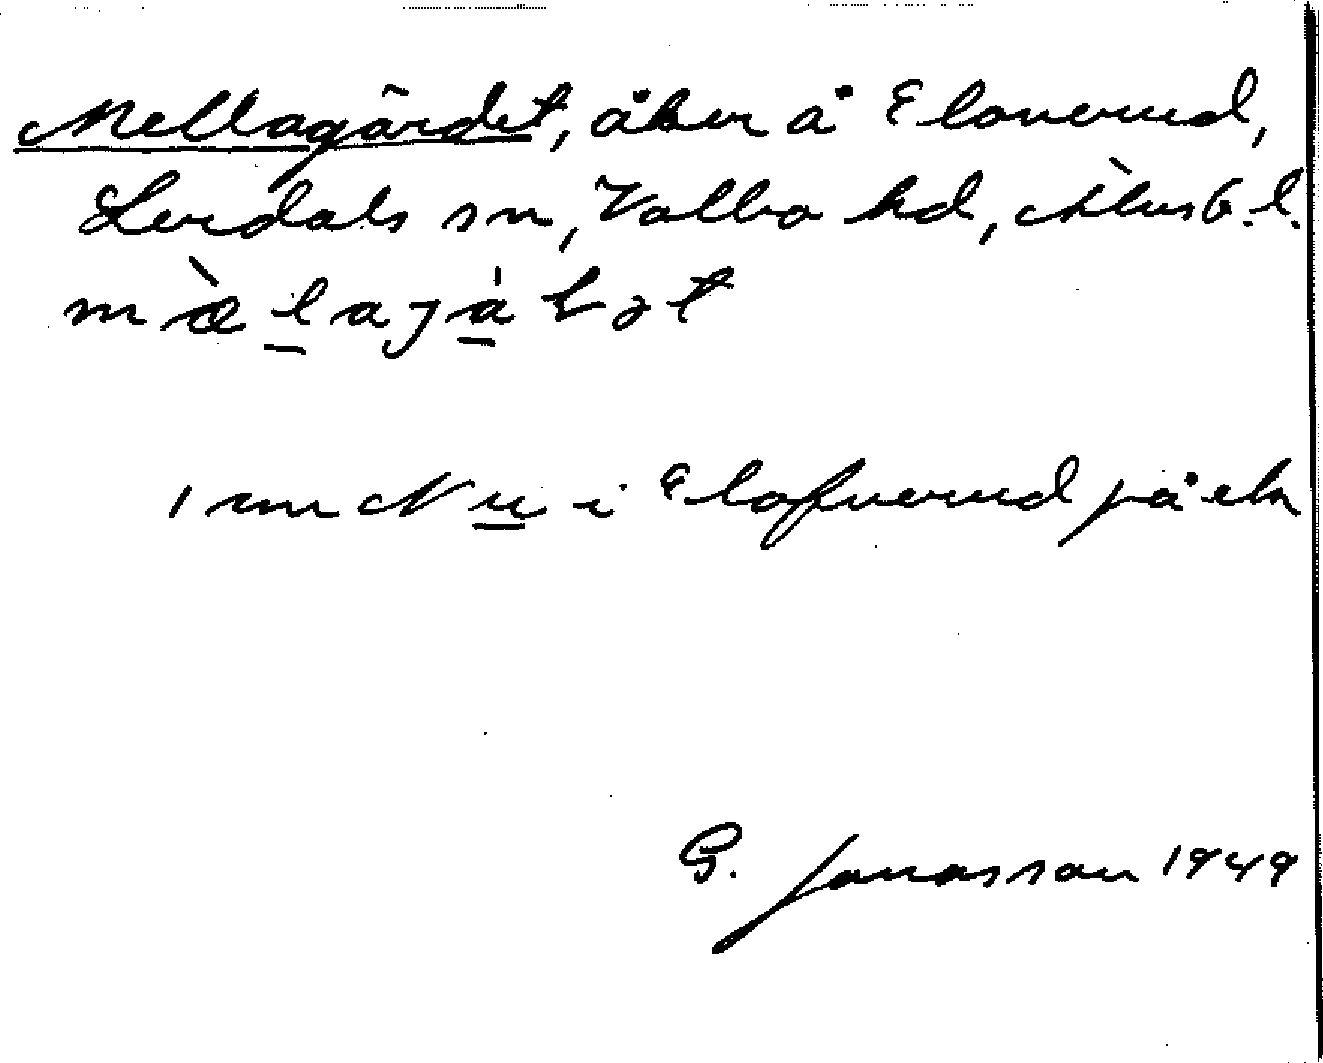 Mellagärdet, åker å Eloverud,
Lerdals sn, Valbo hd, Älvsb. l.
mæ̀lajáḷət
1 mm N u i Elofverud på ek
G. Jonasson 1949